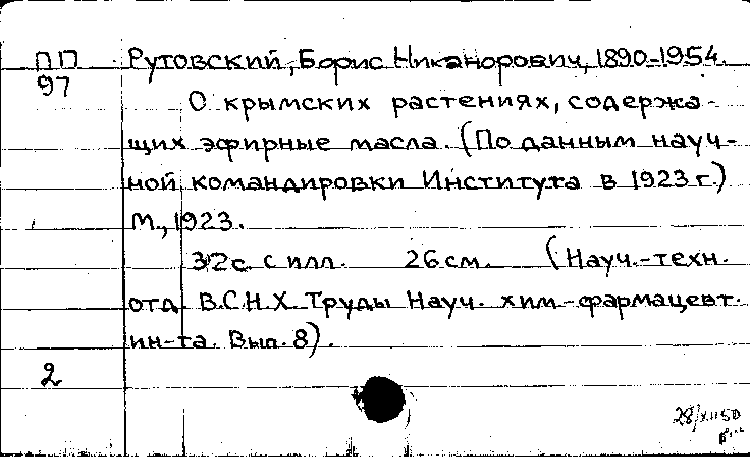 ПП Рутовский, Борис Никанорович, 1890-1954.
97
О крымских растениях, содержа-
щих эфирные масла. (По данным науч-
ной командировки Института в 1923 г.)
М., 1923.
32с. с илл. 26см. (Науч.-техн.
отд. В.С.Н.Х. Труды Науч. хим-фармацевт.
ин-та. Вып. 8).
2
28/XII 50